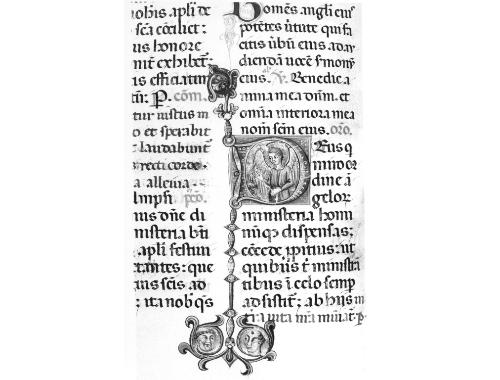 nobis apl̄i de
scā cōcilict:
us honore
nit exhibet:
is efficiatur
tur: P. cōm.
tur iustus in
o et sperabit
laudabunt
recti corde.
a alleuia.
Impsi pco.
nus dn̄e di
misteria bti
apl̄i festiui
tantes: que
uis scis ad
: ita nob̄ qs
Domēs angl̄i eius
potētes ūtute qui fa
citis ūbū eius ad au
diendā uocē s̄monū
eius. V. Benedic a
nima mea dn̄m. et
omīa interiora mea
nom̄ scm̄ eius. oro.
Deus q
miro or
dine ā
gelor
ministeria homi
nūq; dispensas;
cōcede ppitius: ut
quibus t̄ ministrā
tibus ī celo semp
adsistit̄; ab hiis in
tra uita nr̄a muniat̄. p.